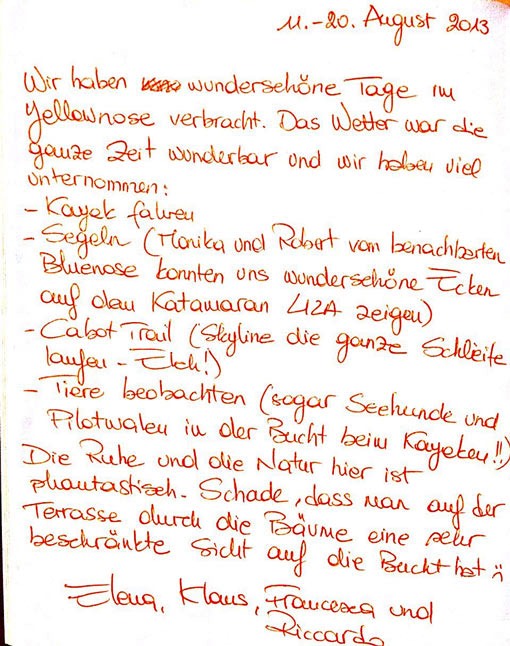 11.-20. August 2013
Wir haben wunderschöne Tage im
Yellownose verbracht. Das Wetter war die
ganze Zeit wunderbar und wir haben viel
unternommen:
- Kayak fahren
- Segeln (Monika und Robert vom benachbarten
Bluenose konnten uns wunderschöne Ecken
auf dem Katamaran LIZA zeigen)
- Cabot Trail (Skyline die ganze Schleife
laufen - Elch!)
- Tiere beobachten (sogar Seehunde und
Pilotwalen in der Bucht beim Kayaken!!)
Die Ruhe und die Natur hier ist
phantastisch. Schade, dass man auf der
Terrasse durch die Bäume eine sehr
beschränkte Sicht auf die Bucht hat :)
Elena, Klaus, Francesca und
Riccardo